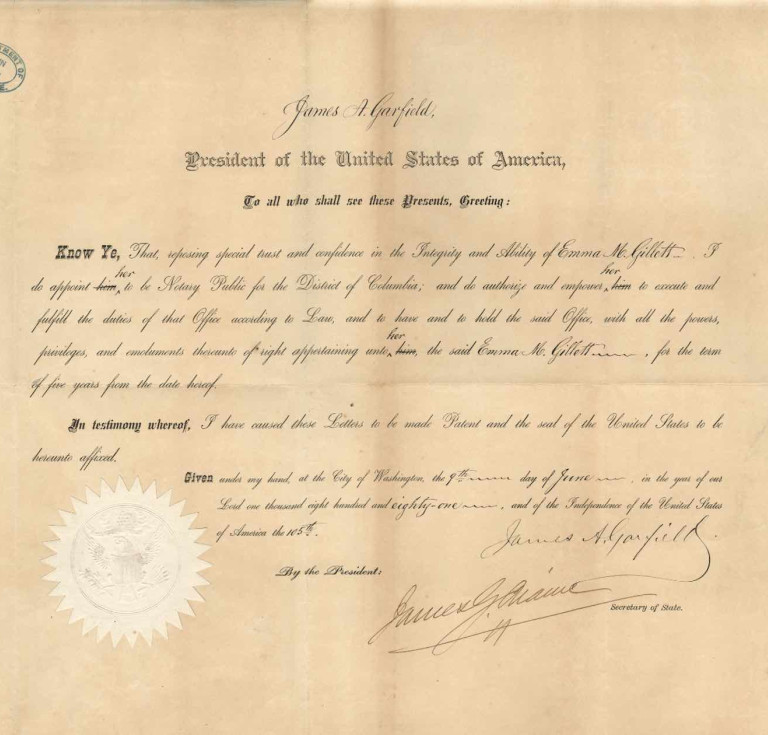 MENT OF
James A. Garfield,
President of the United States of America,
To all who shall see these Presents, Greeting:
Know Ye, That, reposing special trust and confidence in the Integrity and Ability of Emma M. Gillett, I
do appoint him her to be Notary Public for the District of Columbia; and do authorize and empower her him to execute and
fulfill the duties of that Office according to Law, and to have and to hold the said Office, with all the powers,
privileges, and emoluments thereunto of right appertaining unto her him, the said Emma M. Gillett, for the term
of five years from the date hereof.
In testimony whereof, I have caused these Letters to be made Patent and the seal of the United States to be
hereunto affixed.
Given under my hand, at the City of Washington, the 9th day of June, in the year of our
Lord one thousand eight hundred and eighty-one, and of the Independence of the United States
of America the 105th.
James A. Garfield.
By the President:
James G. Blaine
Secretary of State.